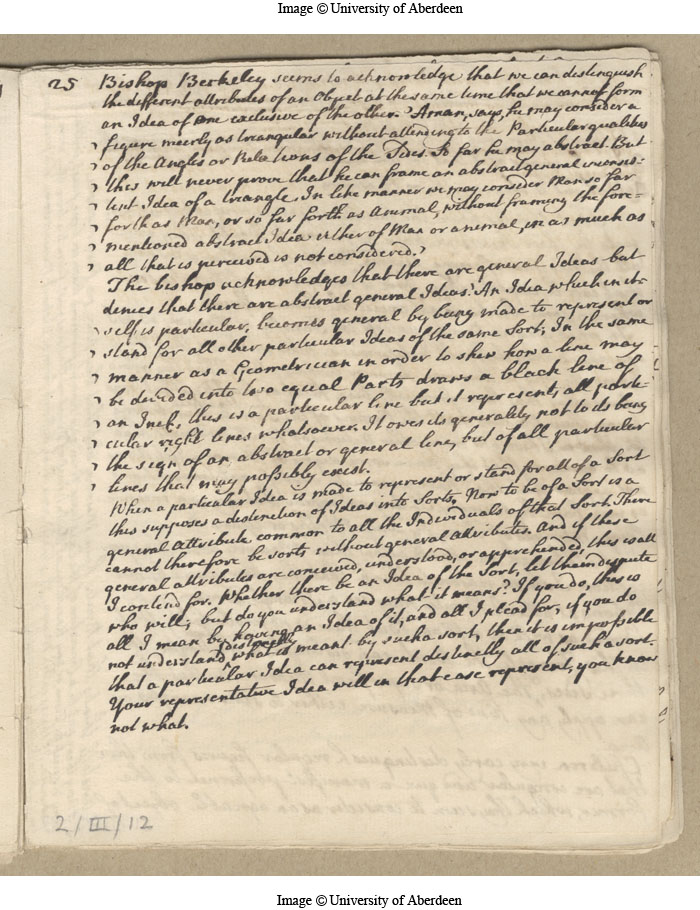 Image © University of Aberdeen
25 Bishop Berkeley seems to acknowledge that we can distinguish
the different attributes of an Object at the same time that we cannot form
an Idea of one exclusive of the other. 'A man, says, he may consider a
' figure meerly as triangular without attending to the Particular qualities
' of the Angles or Relations of the Sides. So far he may abstract. But
' this will never prove that he can frame an abstract general inconsis-
' tent Idea of a triangle. In like manner we may consider Man so far
' forth as Man, or so far forth as Animal, without framing the fore-
' mentioned abstract Idea either of Man or animal, in as much as
' all that is perceived is not considered.'
The bishop acknowledges that there are general Ideas but
denies that there are abstract general Ideas. 'An Idea which in it-
' self is particular, becomes general by being made to represent or
' stand for all other particular Ideas of the same Sort; In the same
' manner as a Geometrician in order to shew how a line may
' be divided into two equal Parts draws a black line of
' an Inch, this is a particular line but it represents all parti-
' cular right lines whatsoever. It owes its generality not to its being
' the sign of an abstract or general line, but of all particular
' lines that may possibly exist.
When a particular Idea is made to represent or stand for all of a Sort
this supposes a distinction of Ideas into Sorts. Now to be of a Sort is a
general Attribute common to all the Individuals of that Sort. There
cannot therefore be sorts without general Attributes. And if these
general attributes are conceived, understood, or apprehended, this is all
I contend for. Whether there be an Idea of the Sort, let them dispute
who will; but do you understand what it means? If you do, this is
all I mean by having an Idea of it, and all I plead for, if you do
not understand distinctly what is meant by such a sort, then it is impossible
that a particular Idea can represent distinctly all of such a sort.
Your representative Idea will in that case represent, you know
not what.
2/III/12
Image © University of Aberdeen